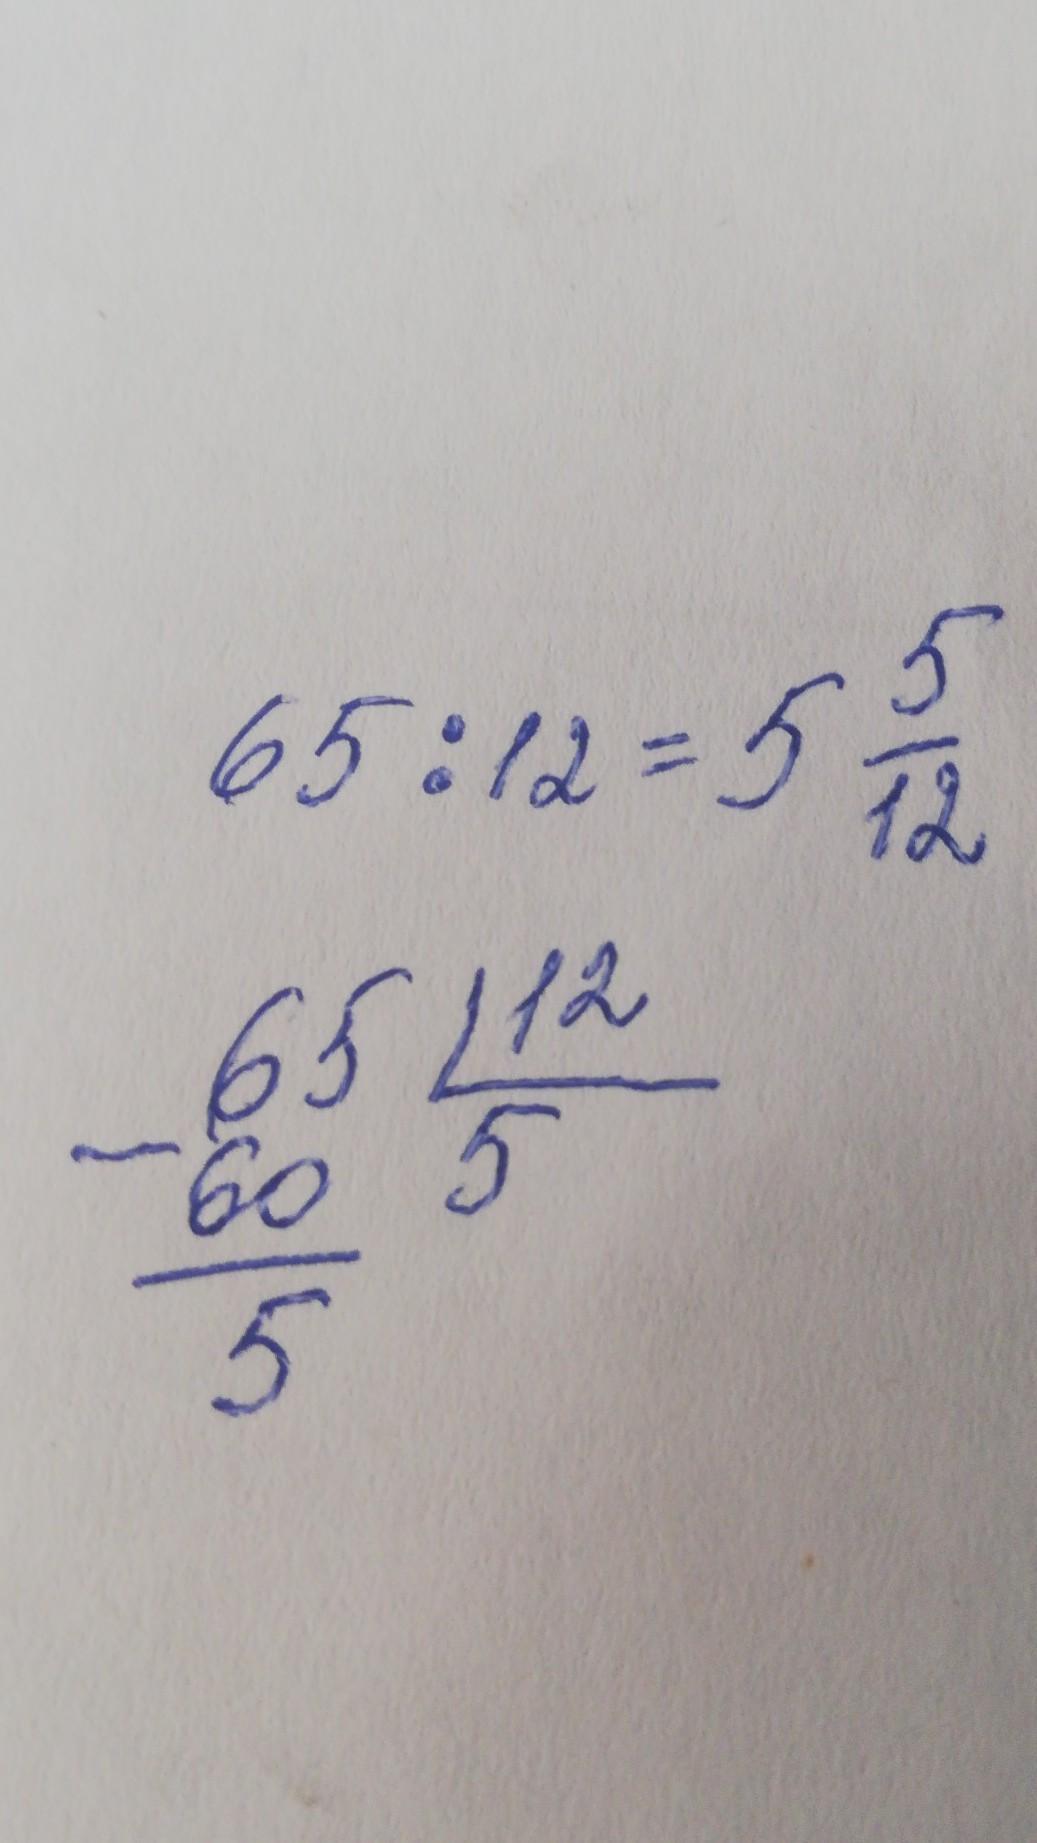 65 : 12 = 5 5/12
65 | 12
- 60 5
5